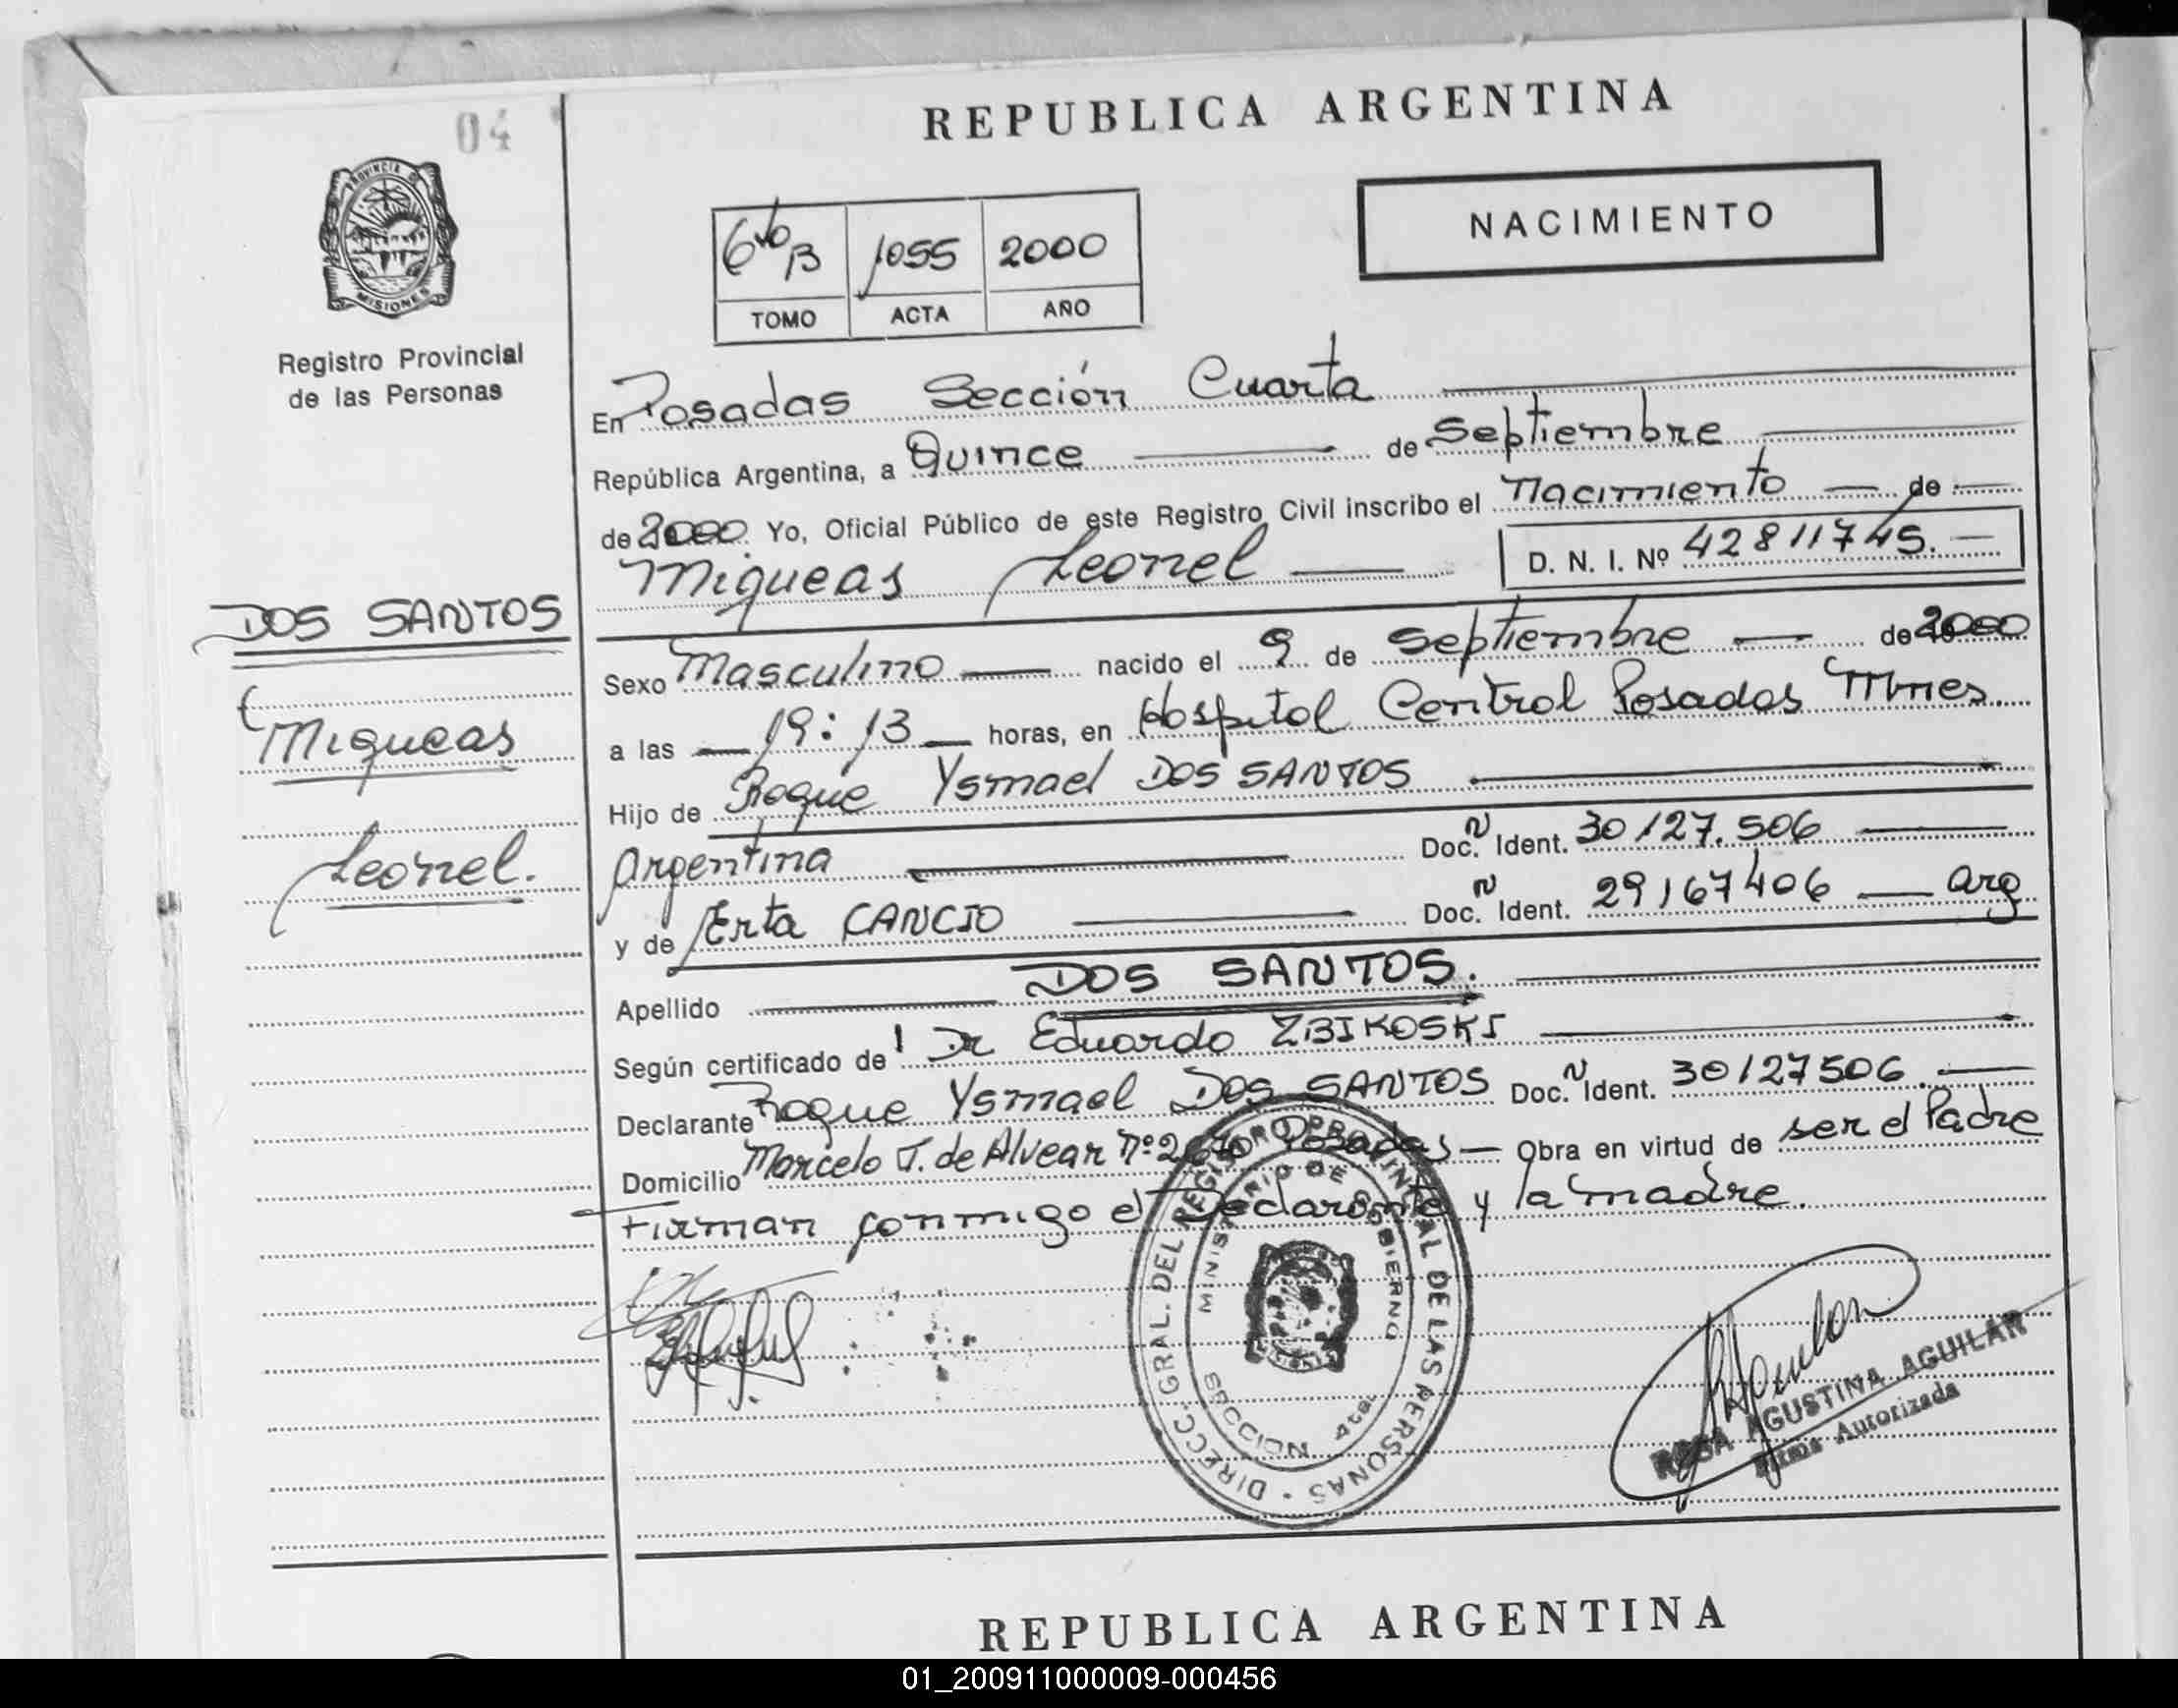 04
REPUBLICA ARGENTINA
PROVINCIA D MISIONES
Registro Provincial
de las Personas
6to B 1055 2000
TOMO ACTA AÑO
NACIMIENTO
En Posadas Sección Cuarta
República Argentina, a Quince de Septiembre
de 2000 Yo, Oficial Público de este Registro Civil inscribo el Nacimiento de
Miqueas Leonel D. N. I. Nº 42811745.
DOS SANTOS
Miqueas
Leonel.
Sexo Masculino nacido el 9 de Septiembre de 2000
a las 19:13 horas, en Hospital Central Posadas Mnes.
Hijo de Roque Ysmael DOS SANTOS
Argentina Doc. N Ident. 30127.506
y de Erta CANCIO Doc. N Ident. 29167406 Arg
Apellido DOS SANTOS.
Según certificado del Dr Eduardo ZBIKOSKI
Declarante Roque Ysmael DOS SANTOS Doc. N Ident. 30127506.
Domicilio Marcelo T. de Alvear Nº Posadas Obra en virtud de ser el Padre
Firman conmigo el Declarante y la madre.
DIRECC. GRAL. DEL REGISTRO PROVINCIAL DE LAS PERSONAS
MINISTERIO DE GOBIERNO
SECCION 4ta.
ROSA AGUSTINA AGUILAR
Firma Autorizada
REPUBLICA ARGENTINA
01_200911000009-000456